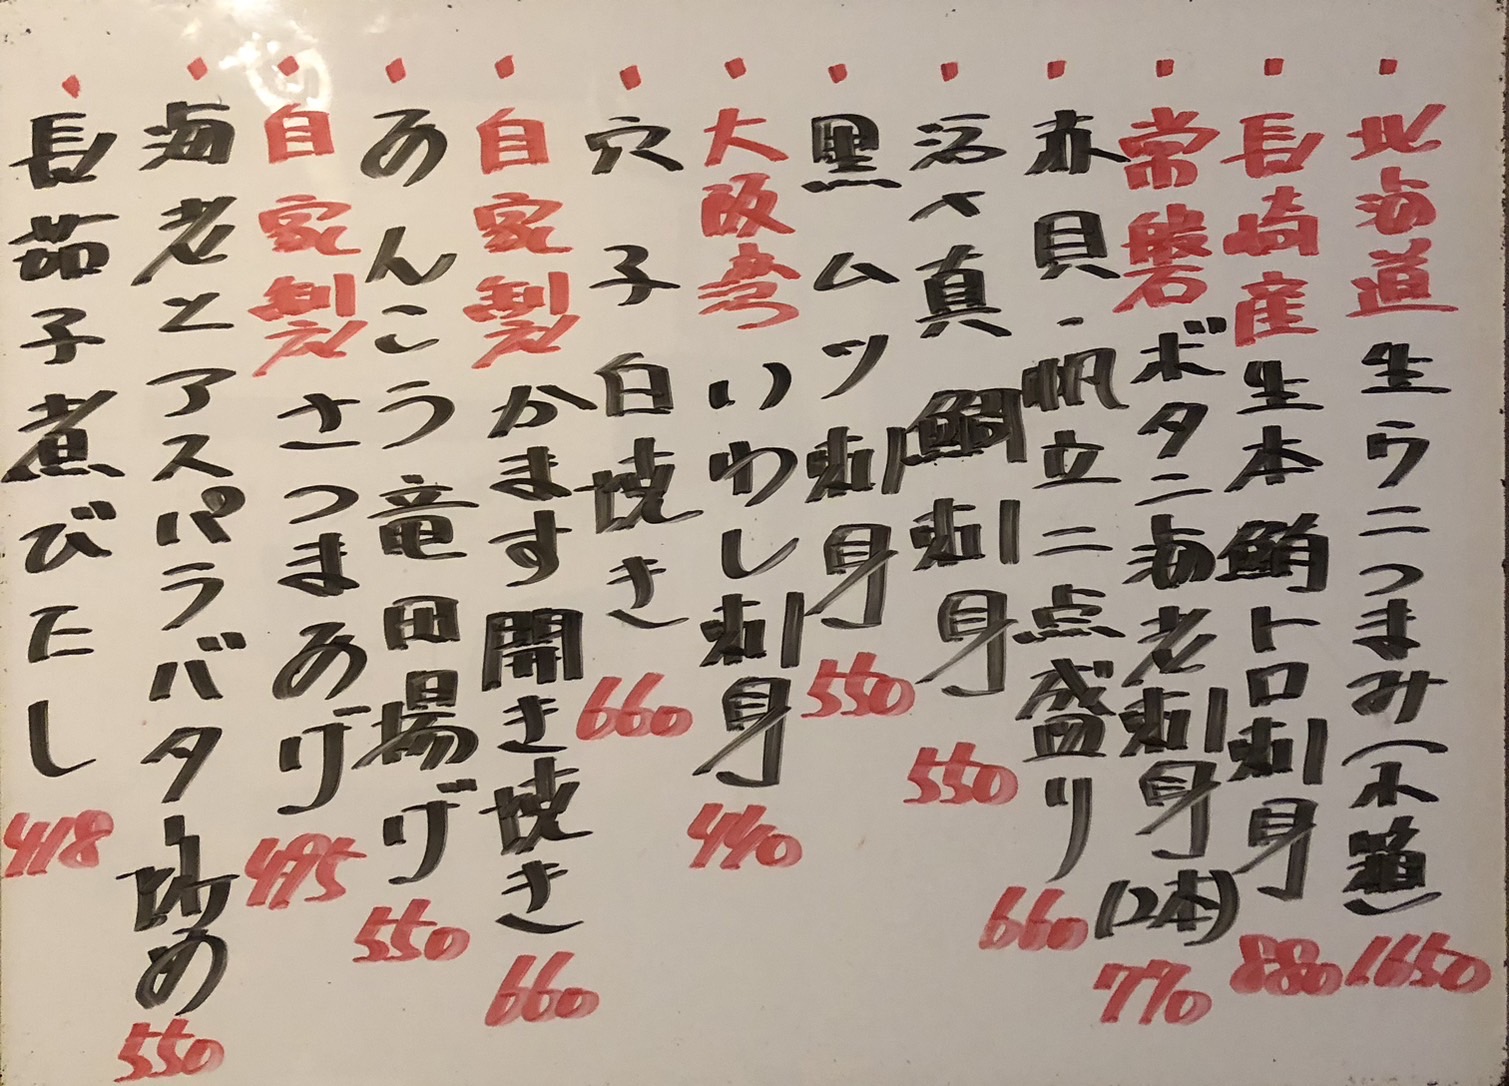 ・北海道生ウニつまみ(木箱)1.650
・長崎産生本鮪トロ刺身880
・常磐ボタン海老刺身(2本)770
・赤貝・帆立二点盛り660
・活〆真鯛刺身550
・黒ムツ刺身550
・大阪湾いわし刺身440
・穴子白焼き660
・自家製かます開き焼き660
・あんこう竜田揚げ550
・自家製さつまあげ495
・海老とアスパラバター炒め550
・長茄子煮びたし418